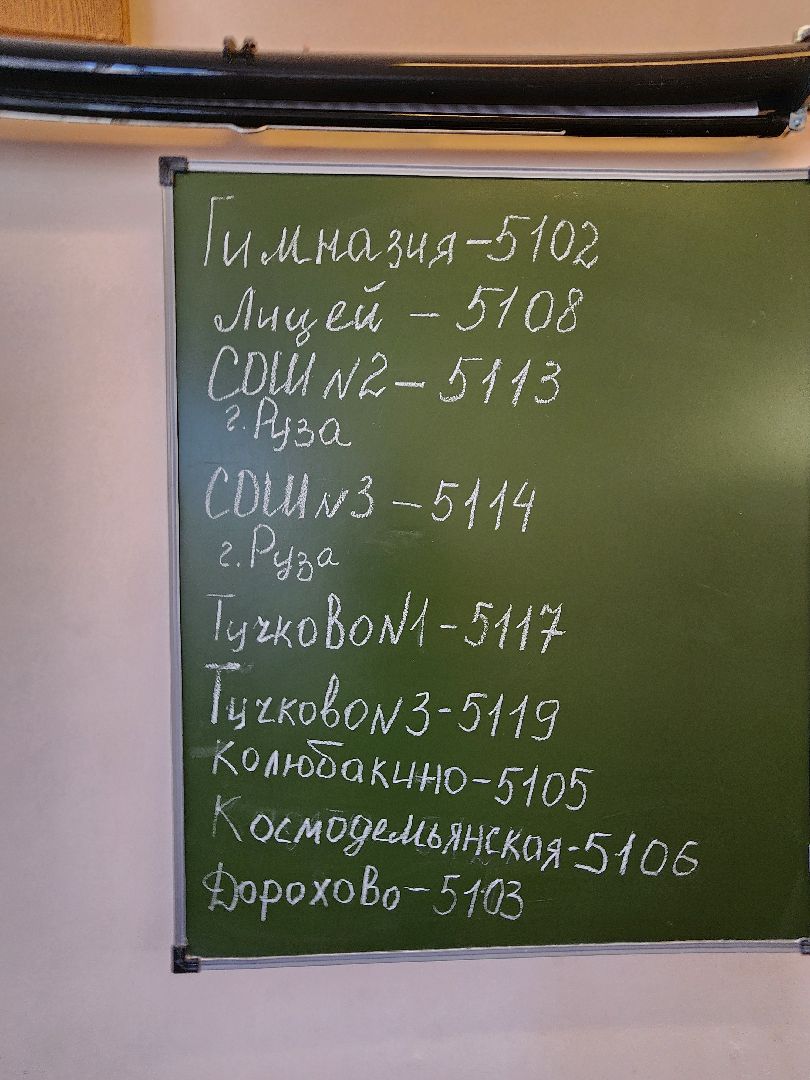 Гимназия-5102
Лицей - 5108
СОШ N2 - 5113
г. Руза
СОШ N3 - 5114
г. Руза
Тучково N1 - 5117
Тучково N3 - 5119
Колюбакино - 5105
Космодемьянская - 5106
Дорохово - 5103